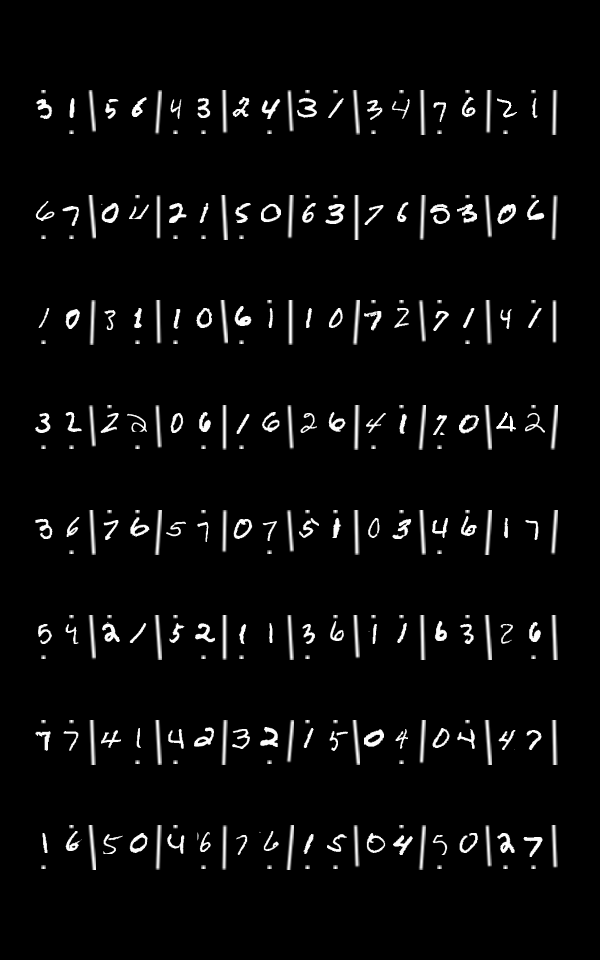 3 1 | 5 6 | 4 3 | 2 4 | 3 1 | 3 4 | 7 6 | 2 1 |
6 7 | 0 4 | 2 1 | 5 0 | 6 3 | 7 6 | 5 3 | 0 6 |
1 0 | 3 1 | 1 0 | 6 1 | 1 0 | 7 2 | 7 1 | 4 1 |
3 2 | 2 2 | 0 6 | 1 6 | 2 6 | 4 1 | 7 0 | 4 2 |
3 6 | 7 6 | 5 7 | 0 7 | 5 1 | 0 3 | 4 6 | 1 7 |
5 4 | 2 1 | 5 2 | 1 1 | 3 6 | 1 1 | 6 3 | 2 6 |
7 7 | 4 1 | 4 2 | 3 2 | 1 5 | 0 4 | 0 4 | 4 7 |
1 6 | 5 0 | 4 6 | 7 6 | 1 5 | 0 4 | 5 0 | 2 7 |